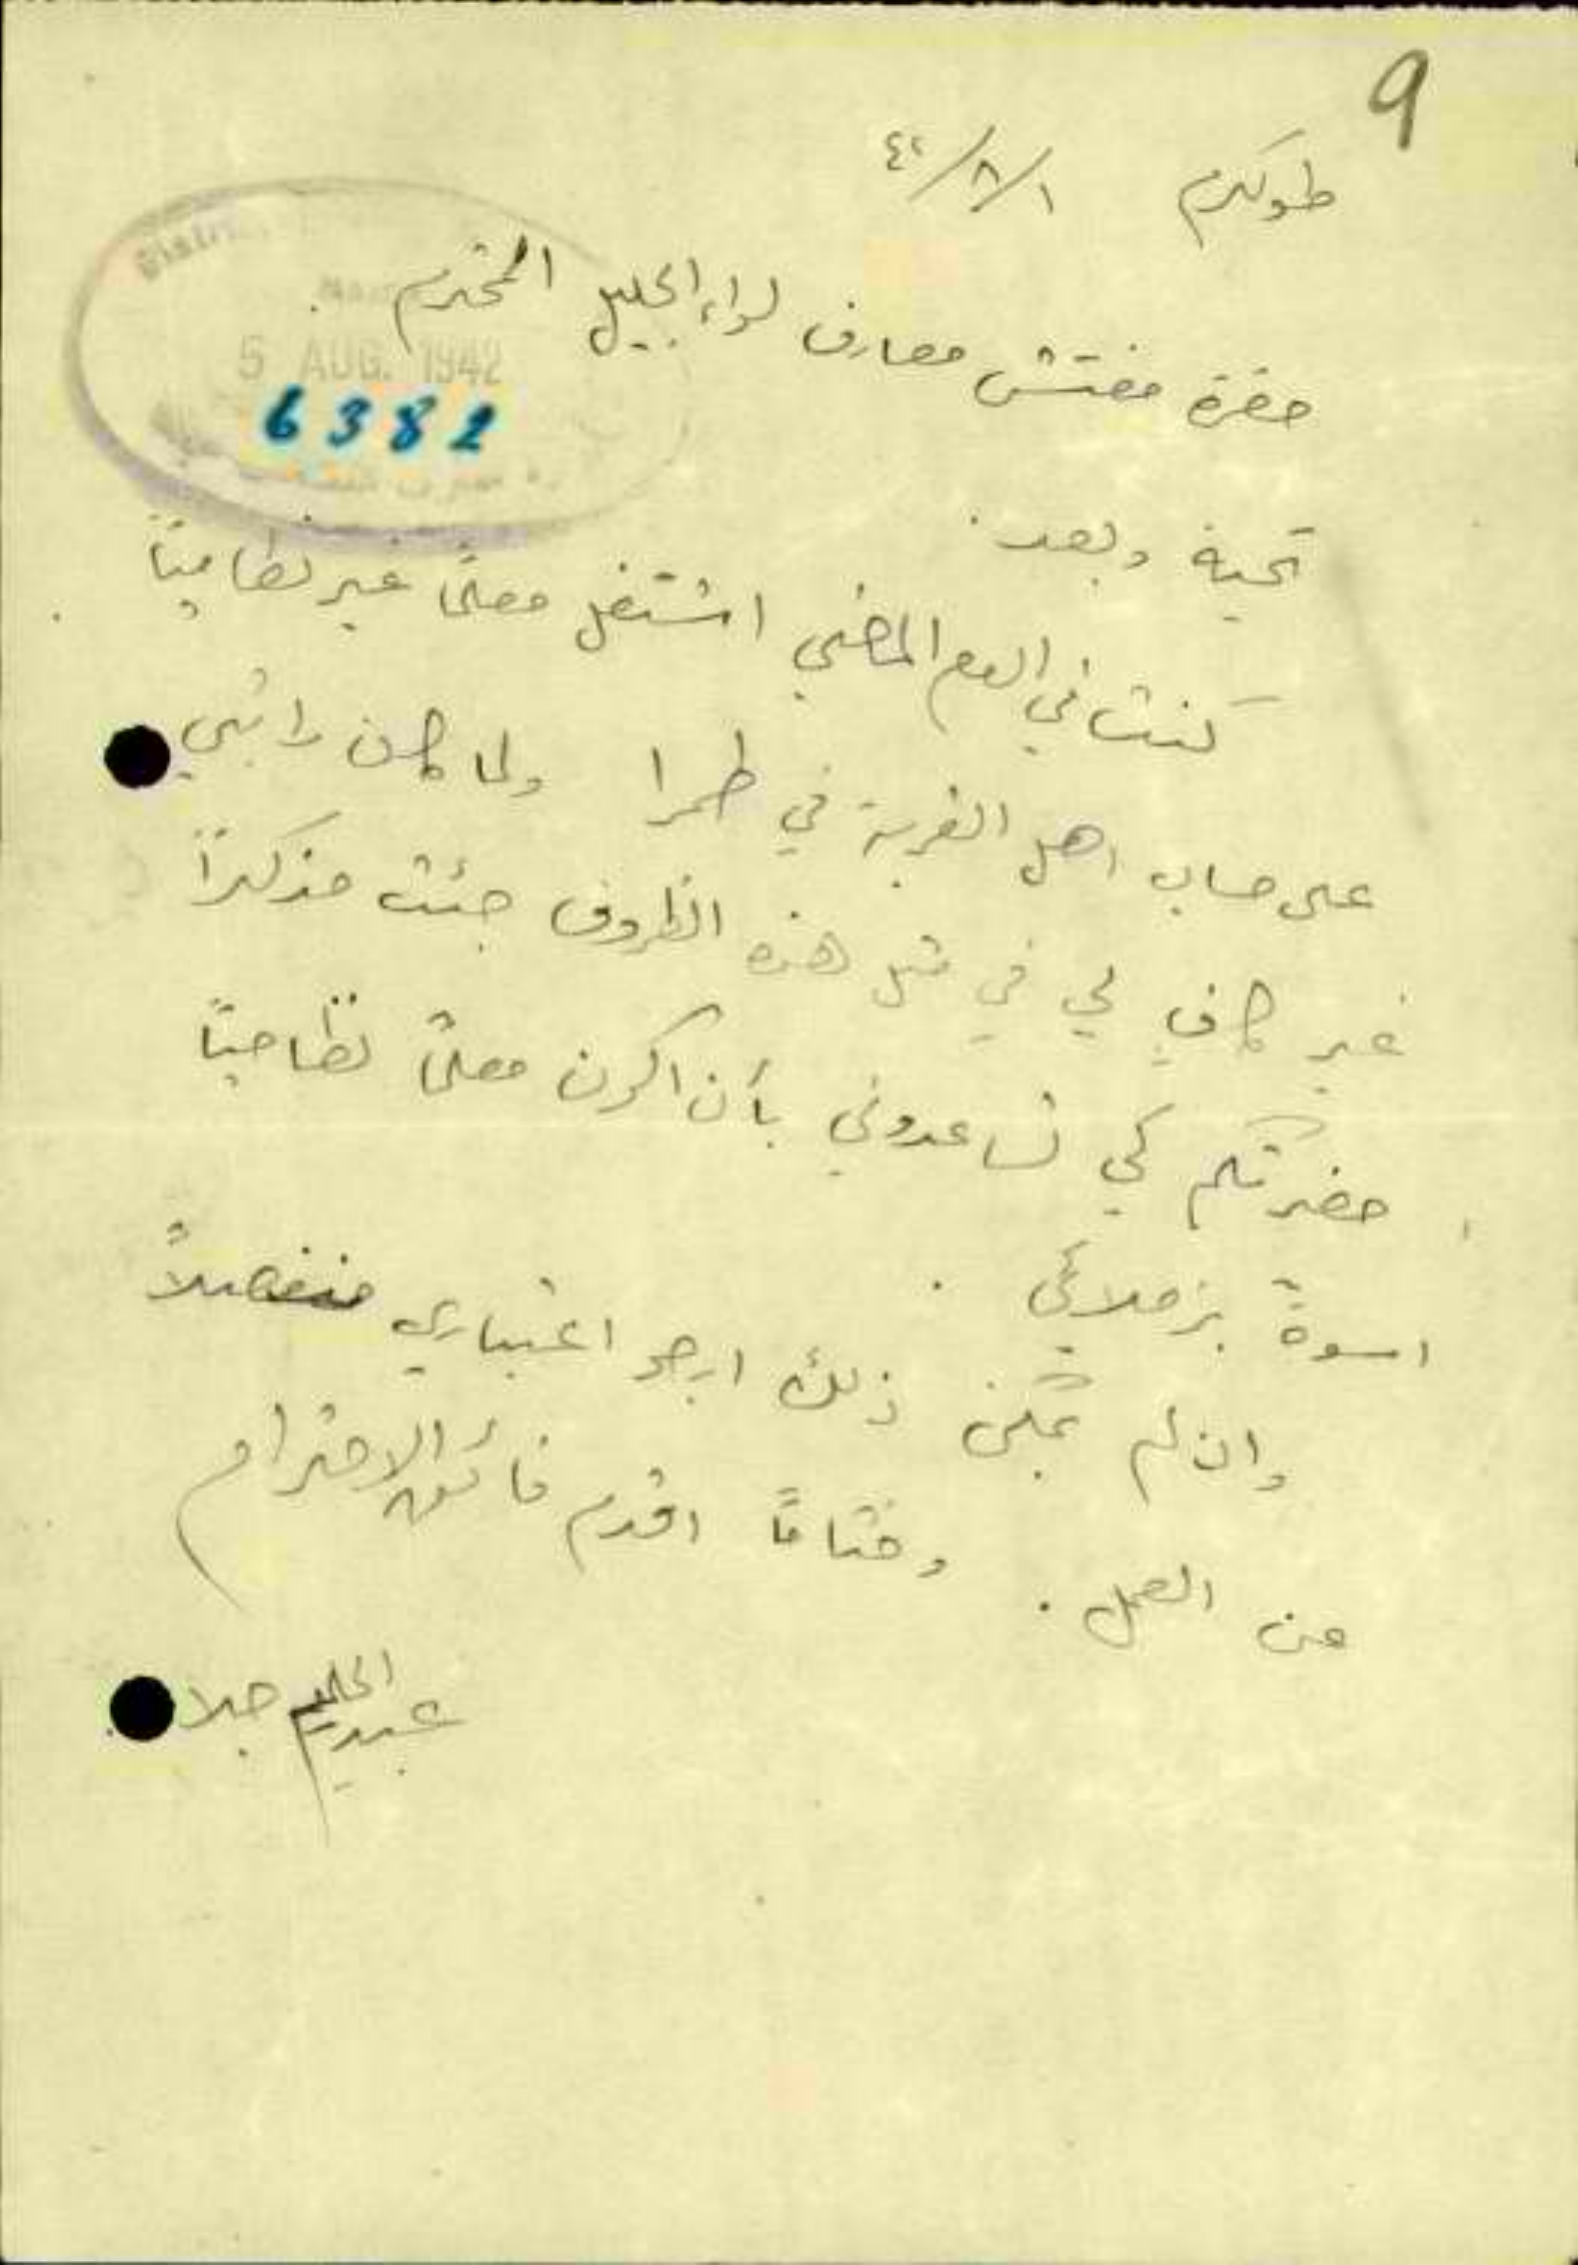 9
طولكرم ١/٨/٤٢
حضرة مفتش معارف لواء الجليل المحترم.
5 AUG. 1942
6382
تحية وبعد.
كنت في العام الماضي اشتغل معلماً غير نظامياً
على حساب اهل القرية في طمرا ولما كان راتبي
غير كافٍ لي في مثل هذه الظروف جئت مذكراً
حضرتكم كي تساعدوني بأن اكون معلماً نظامياً
اسوةً بزملائي.
وان لم يمكن ذلك ارجو اعتباري منفصلاً
من العمل. وختاماً اقدم فائق الاحترام
عبد الحليم جلا